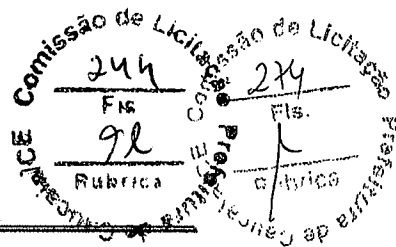 Comissão de Licitação
244
Fls
Rubrica
Prefeitura
Caucaia/CE
são de Licitação
274
Fls.
Rubrica
Prefeitura de Caucaia